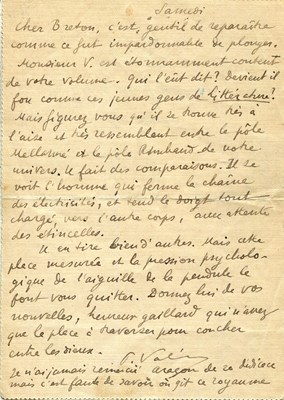 Samedi
Cher Breton, c'est gentil de reparaître
comme ce fut impardonnable de plonger.
Monsieur V. est étonnamment content
de votre volume. Qui l'eût dit? Devient il
fou comme ces jeunes gens de Littérature?
Mais figurez vous qu'il se trouve très à
l'aise et très ressemblant entre le pôle
Mallarmé et le pôle Rimbaud de notre
univers. Il fait des comparaisons. Il se
voit l'homme qui ferme la chaîne
des électricités, et tend le doigt tout
chargé, vers l'autre corps, avec attente
des étincelles.
Il en tire bien d'autres. Mais cette
place mesurée et la pression psycholo-
gique de l'aiguille de la pendule le
font vous quitter. Donnez lui de vos
nouvelles, heureux gaillard qui n'avez
que la place à traverser pour coucher
entre les dieux.
Je n'ai jamais remercié Aragon de sa dédicace
mais c'est faute de savoir où gît ce royaume